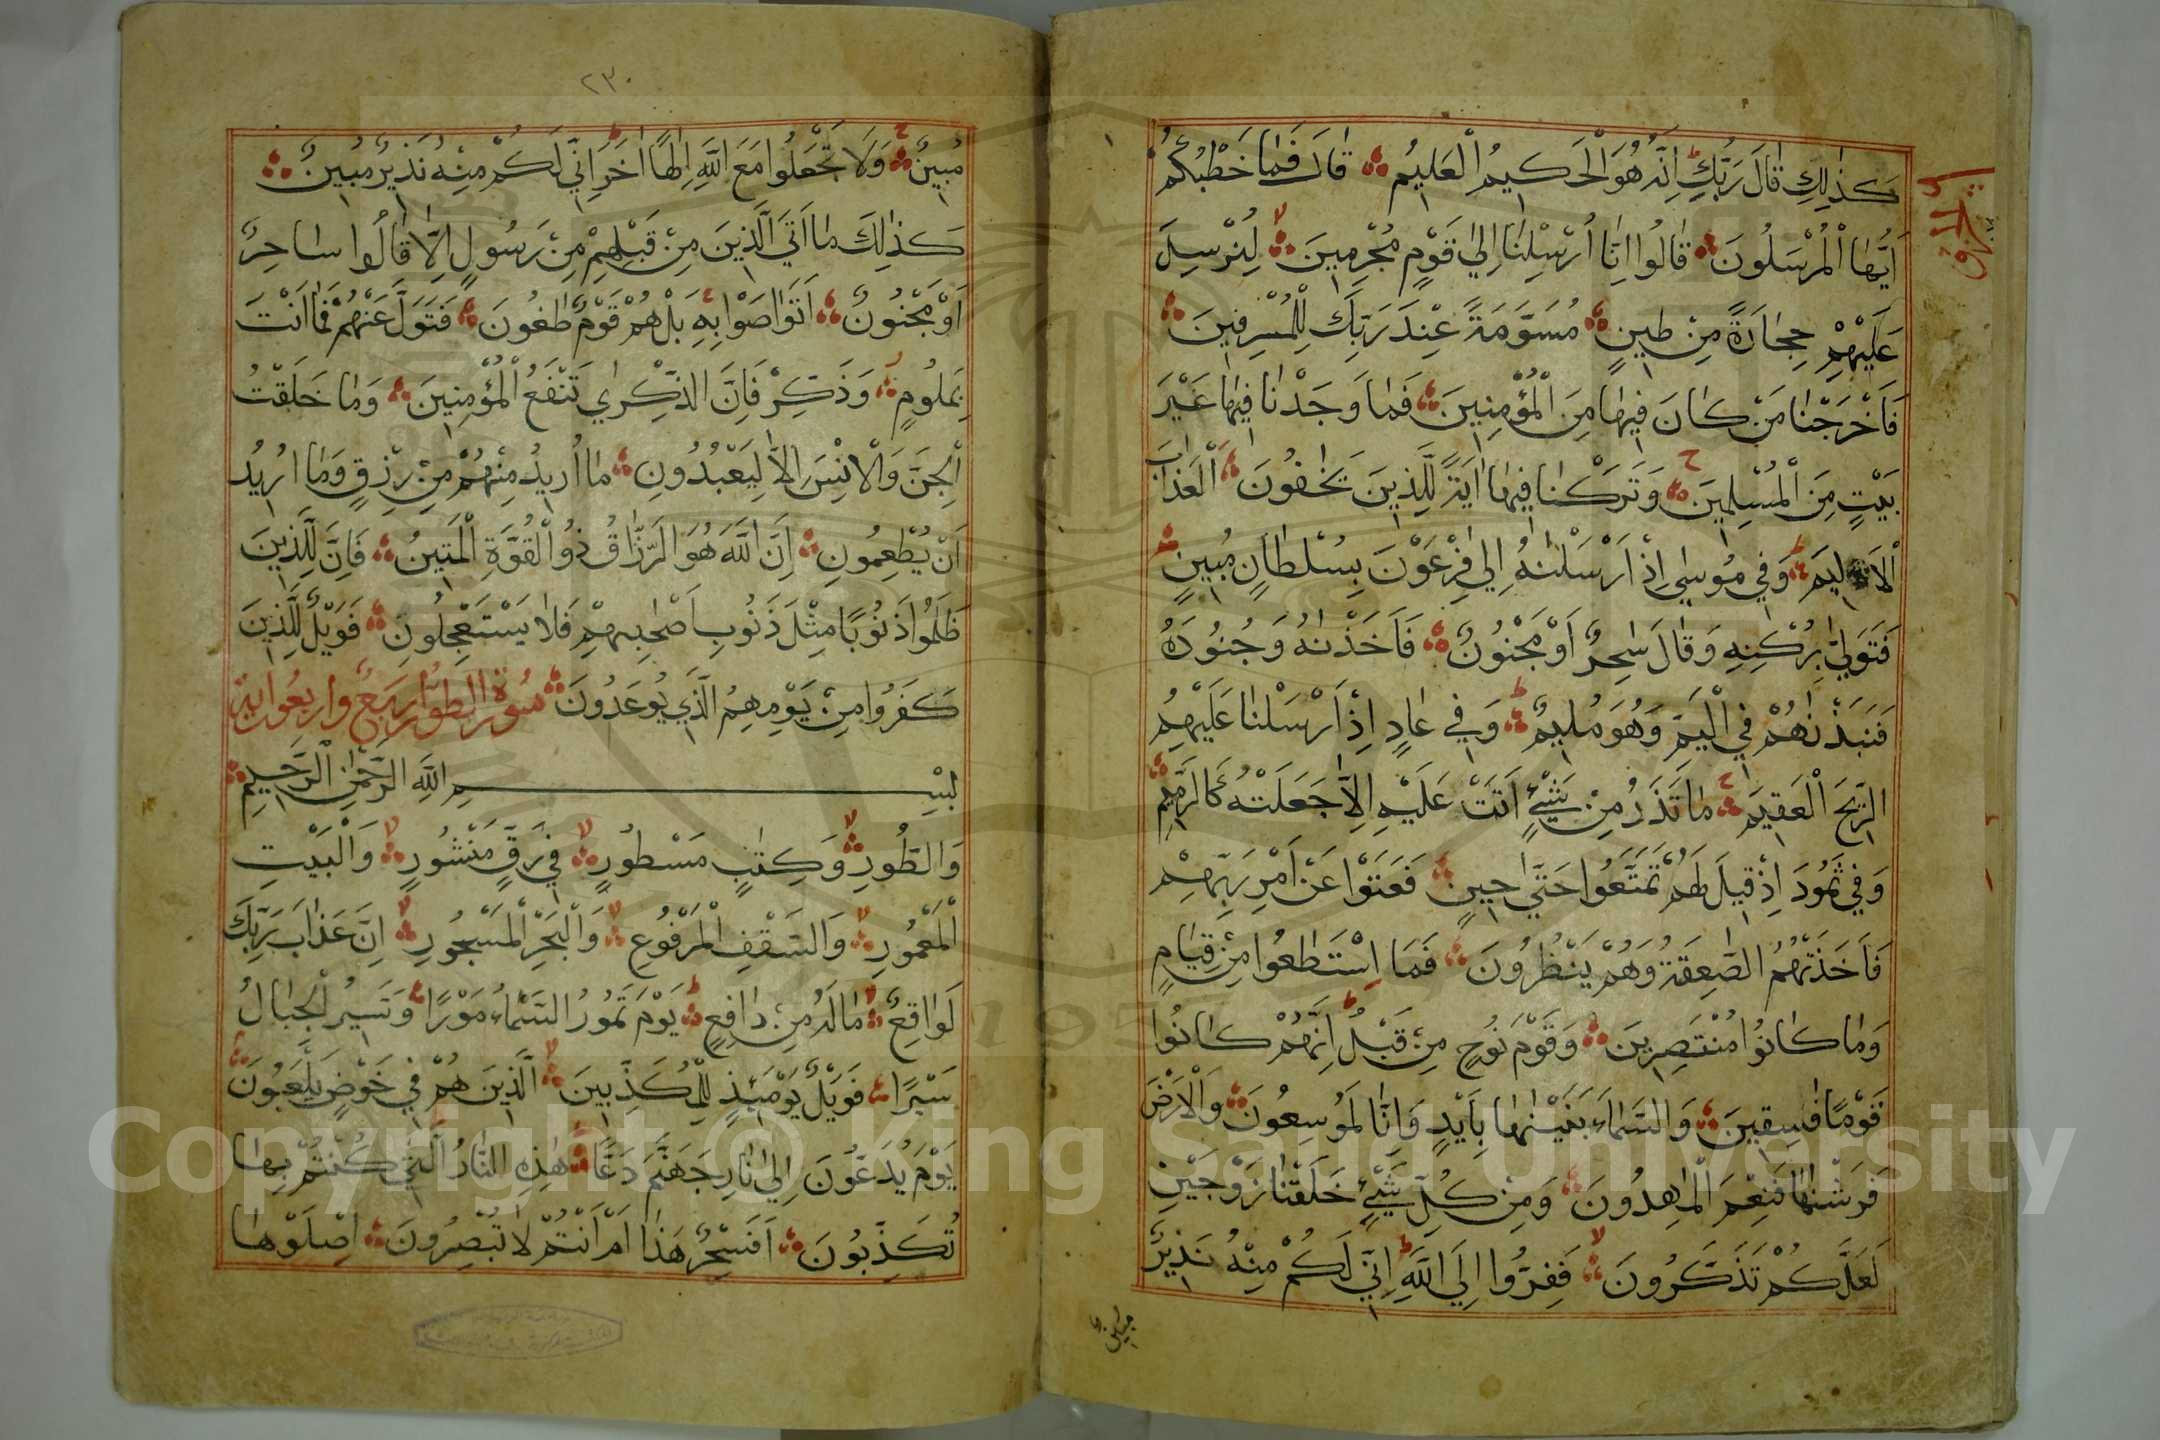 كَذٰلِكِ قَالَ رَبُّكِ اِنَّهُ هُوَ الْحَكيمُ الْعَليمُ قَالَ فَمَا خَطْبُكُمْ
اَيُّهَا الْمُرْسَلُونَ قَالُوا اِنَّا اُرْسِلْنَا اِلىٰ قَوْمٍ مُجْرِمينَ لِنُرْسِلَ
عَلَيْهِمْ حِجَارَةً مِنْ طينٍ مُسَوَّمَةً عِنْدَ رَبِّكَ لِلْمُسْرِفينَ
فَاَخْرَجْنَا مَنْ كَانَ فيهَا مِنَ الْمُؤْمِنينَ فَمَا وَجَدْنَا فيهَا غَيْرَ
بَيْتٍ مِنَ الْمُسْلِمينَ وَتَرَكْنَا فيهَا اٰيَةً لِلَّذينَ يَخَافُونَ الْعَذَابَ
الْاَليمَ وَفي مُوسىٰ اِذْ اَرْسَلْنَاهُ اِلىٰ فِرْعَوْنَ بِسُلْطَانٍ مُبينٍ
فَتَوَلّىٰ بِرُكْنِهِ وَقَالَ سَاحِرٌ اَوْ مَجْنُونٌ فَاَخَذْنَاهُ وَجُنُودَهُ
فَنَبَذْنَاهُمْ فِي الْيَمِّ وَهُوَ مُليمٌ وَفي عَادٍ اِذْ اَرْسَلْنَا عَلَيْهِمُ
الرّيحَ الْعَقيمَ مَا تَذَرُ مِنْ شَيْءٍ اَتَتْ عَلَيْهِ اِلَّا جَعَلَتْهُ كَالرَّميمِ
وَفي ثَمُودَ اِذْ قيلَ لَهُمْ تَمَتَّعُوا حَتّىٰ حينٍ فَعَتَوْا عَنْ اَمْرِ رَبِّهِمْ
فَاَخَذَتْهُمُ الصَّاعِقَةُ وَهُمْ يَنْظُرُونَ فَمَا اسْتَطَاعُوا مِنْ قِيَامٍ
وَمَا كَانُوا مُنْتَصِرينَ وَقَوْمَ نُوحٍ مِنْ قَبْلُ اِنَّهُمْ كَانُوا
قَوْمًا فَاسِقينَ وَالسَّمَاءَ بَنَيْنَاهَا بِاَيْدٍ وَاِنَّا لَمُوسِعُونَ وَالْاَرْضَ
فَرَشْنَاهَا فَنِعْمَ الْمَاهِدُونَ وَمِنْ كُلِّ شَيْءٍ خَلَقْنَا زَوْجَيْنِ
لَعَلَّكُمْ تَذَكَّرُونَ فَفِرُّوا اِلَى اللّٰهِ اِنّي لَكُمْ مِنْهُ نَذيرٌ
٢٣٠
مُبينٌ وَلَا تَجْعَلُوا مَعَ اللّٰهِ اِلٰهًا اٰخَرَ اِنّي لَكُمْ مِنْهُ نَذيرٌ مُبينٌ
كَذٰلِكَ مَا اَتَى الَّذينَ مِنْ قَبْلِهِمْ مِنْ رَسُولٍ اِلَّا قَالُوا سَاحِرٌ
اَوْ مَجْنُونٌ اَتَوَاصَوْا بِهِ بَلْ هُمْ قَوْمٌ طَاغُونَ فَتَوَلَّ عَنْهُمْ فَمَا اَنْتَ
بِمَلُومٍ وَذَكِّرْ فَاِنَّ الذِّكْرىٰ تَنْفَعُ الْمُؤْمِنينَ وَمَا خَلَقْتُ
الْجِنَّ وَالْاِنْسَ اِلَّا لِيَعْبُدُونِ مَا اُريدُ مِنْهُمْ مِنْ رِزْقٍ وَمَا اُريدُ
اَنْ يُطْعِمُونِ اِنَّ اللّٰهَ هُوَ الرَّزَّاقُ ذُو الْقُوَّةِ الْمَتينُ فَاِنَّ لِلَّذينَ
ظَلَمُوا ذَنُوبًا مِثْلَ ذَنُوبِ اَصْحَابِهِمْ فَلَا يَسْتَعْجِلُونِ فَوَيْلٌ لِلَّذينَ
كَفَرُوا مِنْ يَوْمِهِمُ الَّذي يُوعَدُونَ سُورَةُ الطُّورِ اربعٌ واربعون اية
بِسْمِ اللّٰهِ الرَّحْمٰنِ الرَّحيمِ
وَالطُّورِ وَكِتَابٍ مَسْطُورٍ في رَقٍّ مَنْشُورٍ وَالْبَيْتِ
الْمَعْمُورِ وَالسَّقْفِ الْمَرْفُوعِ وَالْبَحْرِ الْمَسْجُورِ اِنَّ عَذَابَ رَبِّكَ
لَوَاقِعٌ مَا لَهُ مِنْ دَافِعٍ يَوْمَ تَمُورُ السَّمَاءُ مَوْرًا وَتَسيرُ الْجِبَالُ
سَيْرًا فَوَيْلٌ يَوْمَئِذٍ لِلْمُكَذِّبينَ الَّذينَ هُمْ في خَوْضٍ يَلْعَبُونَ
يَوْمَ يُدَعُّونَ اِلىٰ نَارِ جَهَنَّمَ دَعًّا هٰذِهِ النَّارُ الَّتي كُنْتُمْ بِهَا
تُكَذِّبُونَ اَفَسِحْرٌ هٰذَا اَمْ اَنْتُمْ لَا تُبْصِرُونَ اِصْلَوْهَا
Copyright © King Saud University